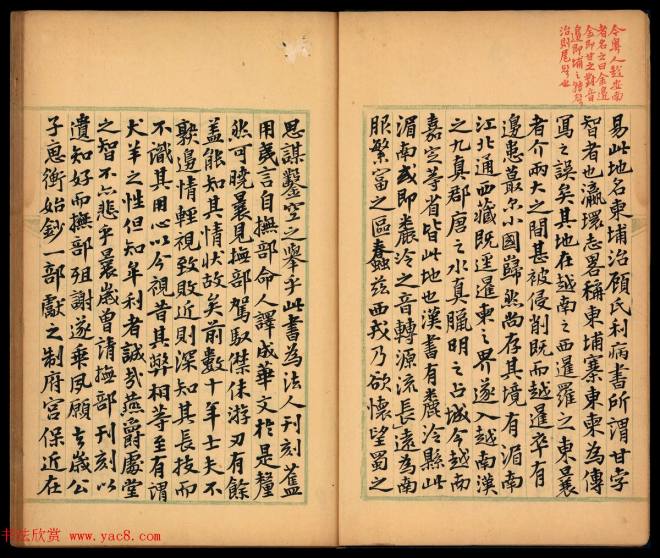 令粤人趋安南
者名之曰金邊
金即甘之對音
邊即埔之轉聲
治則尾聲也
易此地名柬埔治顧氏利病書所謂甘孛
智者也瀛環志畧稱柬埔寨柬柬為傳
寫之誤矣其地在越南之西暹羅之東曩
者介兩大之閒甚被侵削既而越暹卒有
邊患蕞尔小國歸然尚存其境有湄南
江北通西藏既逕暹柬之界遂入越南漢
之九真郡唐之水真臘明之占城今越南
嘉定等省皆此地也漢書有麊泠縣此
湄南或即麊泠之音轉源流長遠為南
服繁富之區蠢茲西戎乃欲懷望蜀之
思謀鑿空之舉乎此書為法人刊刻蓋
用夷言自撫部命人譯成華文於是釐
然可曉曩見撫部駕馭傑佅游刃有餘
蓋能知其情狀故矣前數十年士夫不
騃邊情輕視致敗近則深知其長技而
不識其用心以今視昔其弊相等至有謂
犬羊之性但知牟利者誠哉燕爵處堂
之智不亦悲乎曩歲曾請撫部刊刻以
遺知好而撫部殂謝遂乘夙願去歲公
子惠衡始鈔一部獻之制府宮保近在
书法欣赏→www.yac8.com